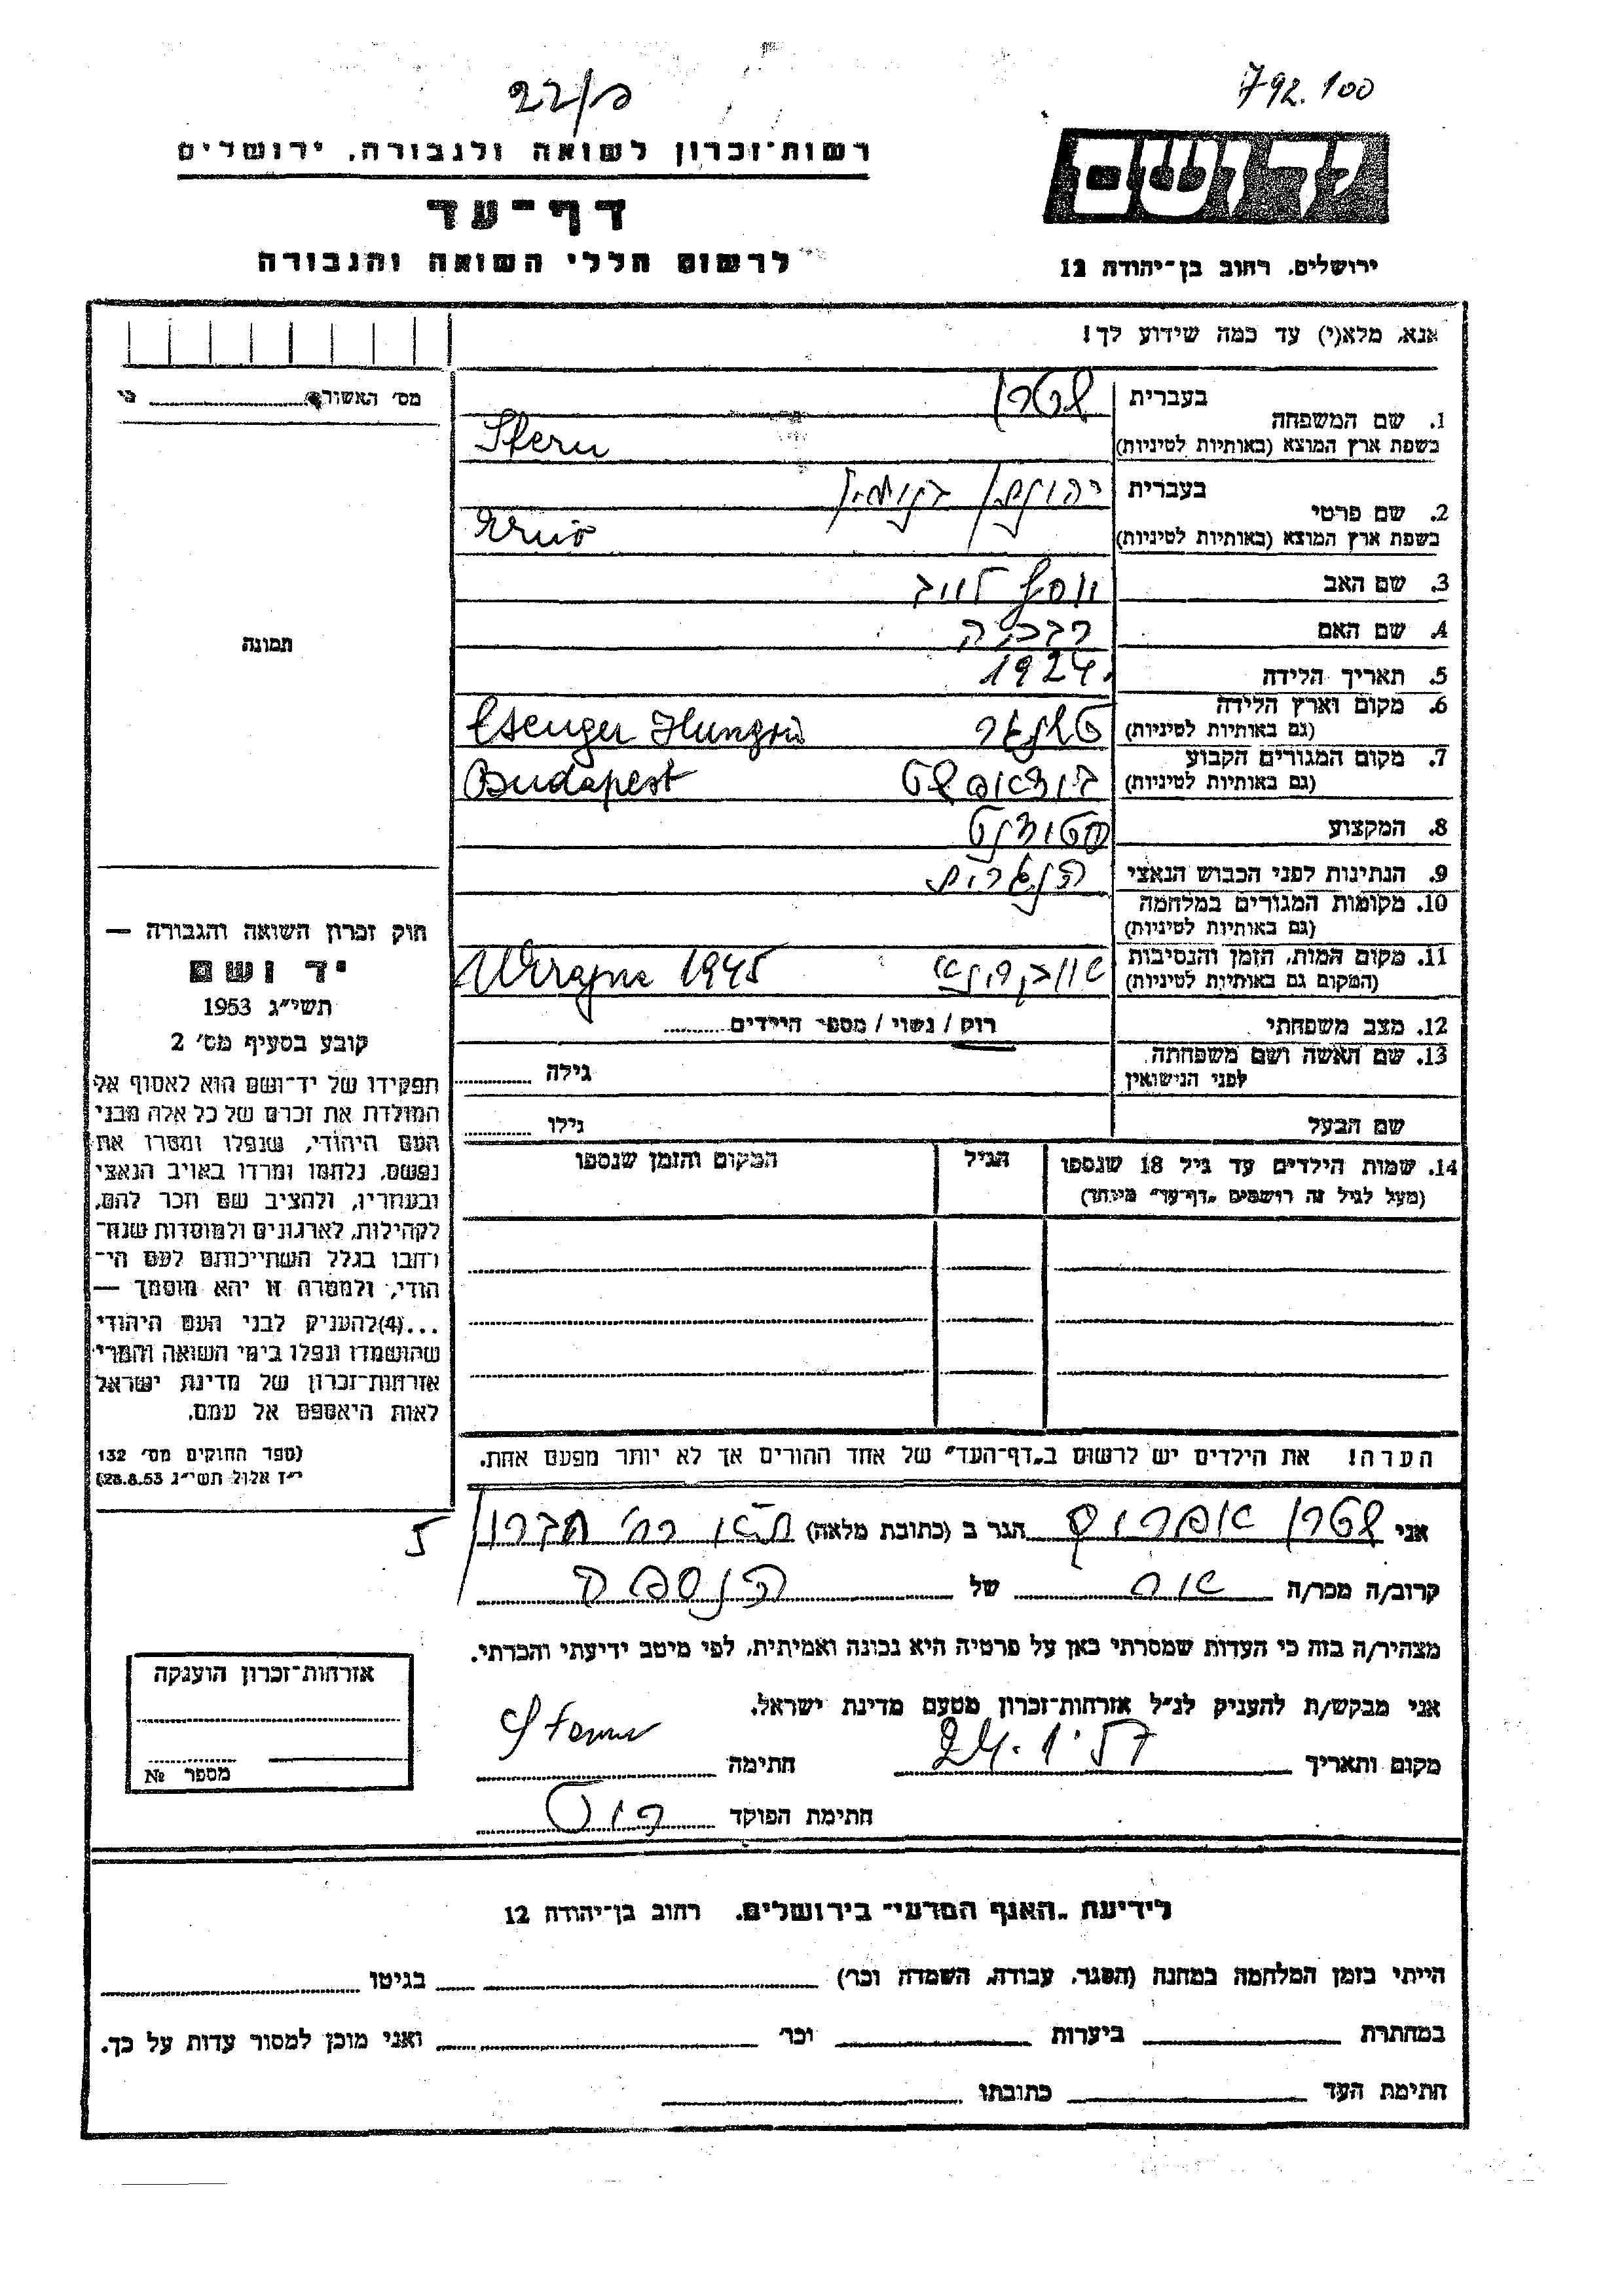 22/פ
792.100
רשות־זכרון לשואה ולגבורה, ירושלים
דף־עד
לרשום חללי השואה והגבורה
יד ושם
ירושלים, רחוב בן־יהודה 12
אנא, מלא(י) עד כמה שידוע לך!
מס׳ האשור
תמונה
1. שם המשפחה
בעברית שטרן
בשפת ארץ המוצא (באותיות לטיניות) Stern
2. שם פרטי
בעברית יהונתן בנימין
בשפת ארץ המוצא (באותיות לטיניות) Ernö
3. שם האב יוסף
4. שם האם רבקה
5. תאריך הלידה 1924
6. מקום וארץ הלידה
(גם באותיות לטיניות) Csenger
7. מקום המגורים הקבוע
(גם באותיות לטיניות) בודאפשט Budapest
8. המקצוע סטודנט
9. הנתינות לפני הכבוש הנאצי הנגרית
10. מקומות המגורים במלחמה
(גם באותיות לטיניות)
11. מקום המות, הזמן והנסיבות
(המקום גם באותיות לטיניות) אוקרינא 1945
12. מצב משפחתי רוק / נשוי / מספר הילדים
13. שם האשה ושם משפחתה
לפני הנישואין גילה
שם הבעל גילו
14. שמות הילדים עד גיל 18 שנספו הגיל המקום והזמן שנספו
(מעל לגיל זה רושמים „דף־עד״ מיוחד)
הערה! את הילדים יש לרשום ב„דף־העד״ של אחד ההורים אך לא יותר מפעם אחת.
חוק זכרון השואה והגבורה —
יד ושם
תשי״ג 1953
קובע בסעיף מס׳ 2
תפקידו של יד־ושם הוא לאסוף אל
המולדת את זכרם של כל אלה מבני
העם היהודי, שנפלו ומסרו את
נפשם, נלחמו ומרדו באויב הנאצי
ובעוזריו, ולהציב שם וזכר להם,
לקהילות, לארגונים ולמוסדות שנח־
רבו בגלל השתייכותם לעם הי־
הודי, ולמטרה זו יהא מוסמך —
...(4) להעניק לבני העם היהודי
שהושמדו ונפלו בימי השואה והמרי
אזרחות־זכרון של מדינת ישראל
לאות היאספם אל עמם.
(ספר החוקים מס׳ 132
י״ז אלול תשי״ג 28.8.53)
אני שטרן אפרים הגר ב (כתובת מלאה) ת״א רח׳ חברון 5
קרוב/ה מכר/ה אח של הנספה
מצהיר/ה בזה כי העדות שמסרתי כאן על פרטיה היא נכונה ואמיתית, לפי מיטב ידיעתי והכרתי.
אני מבקש/ת להעניק לנ״ל אזרחות־זכרון מטעם מדינת ישראל.
מקום ותאריך 24.1.57 חתימה
חתימת הפוקד
אזרחות־זכרון הוענקה
מספר №
לידיעת „האגף המדעי״ בירושלים. רחוב בן־יהודה 12
הייתי בזמן המלחמה במחנה (הסגר, עבודה, השמדה וכר׳) בגיטו
במחתרת ביערות וכר׳ ואני מוכן למסור עדות על כך.
חתימת העד כתובתו